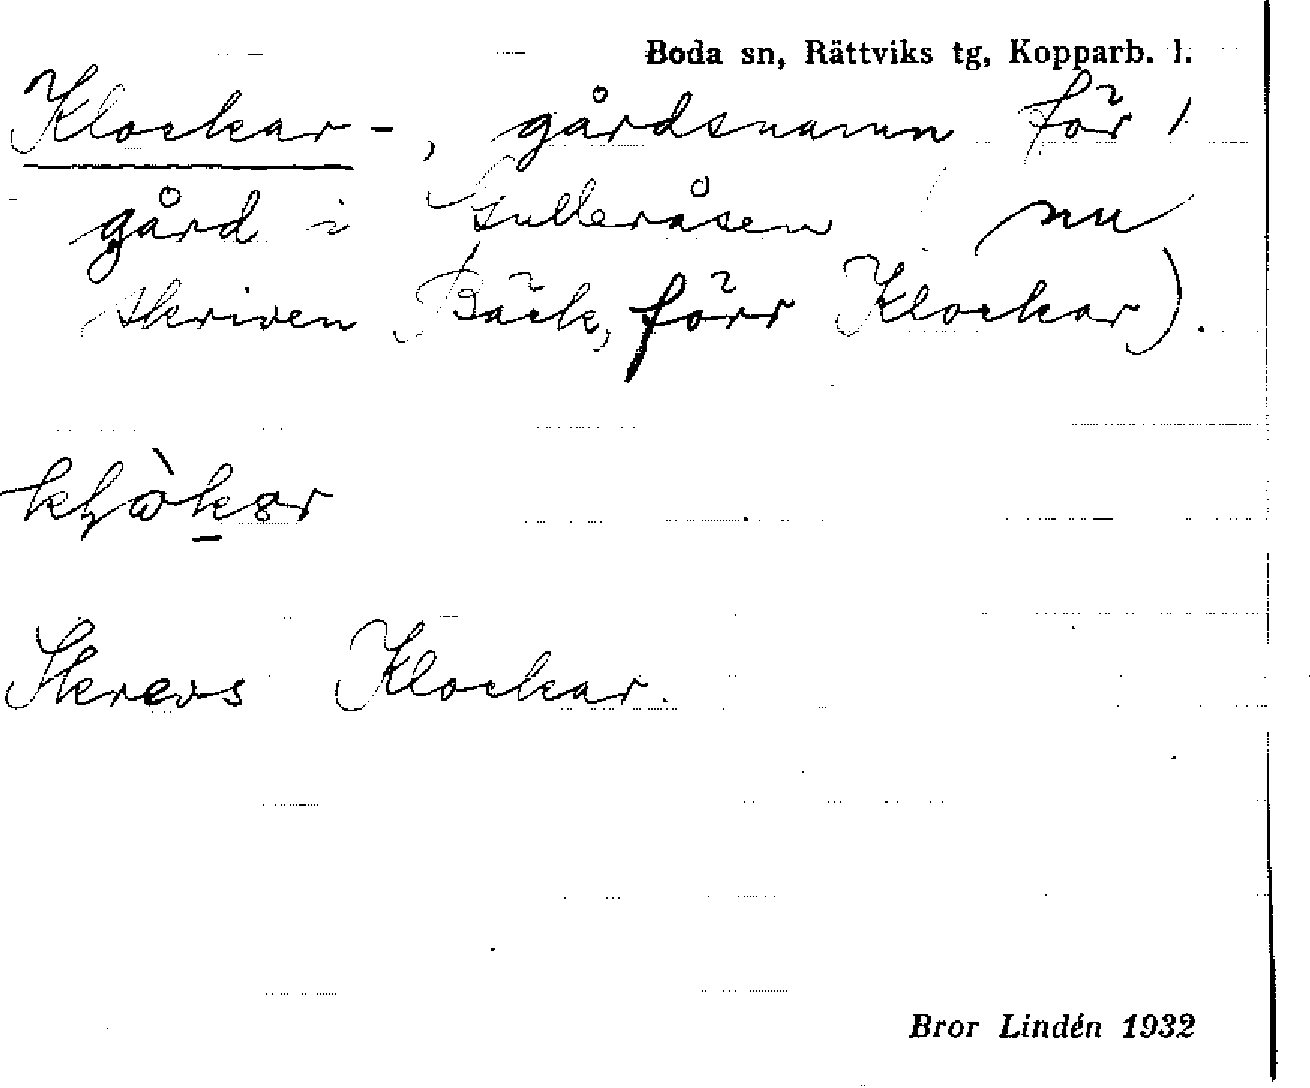 Boda sn, Rättviks tg, Kopparb. l.
Klockar-, gårdsnamn för 1
gård i Gulleråsen (nu
skriven Bäck, förr Klockar).
Skrevs Klockar.
Bror Lindén 1932